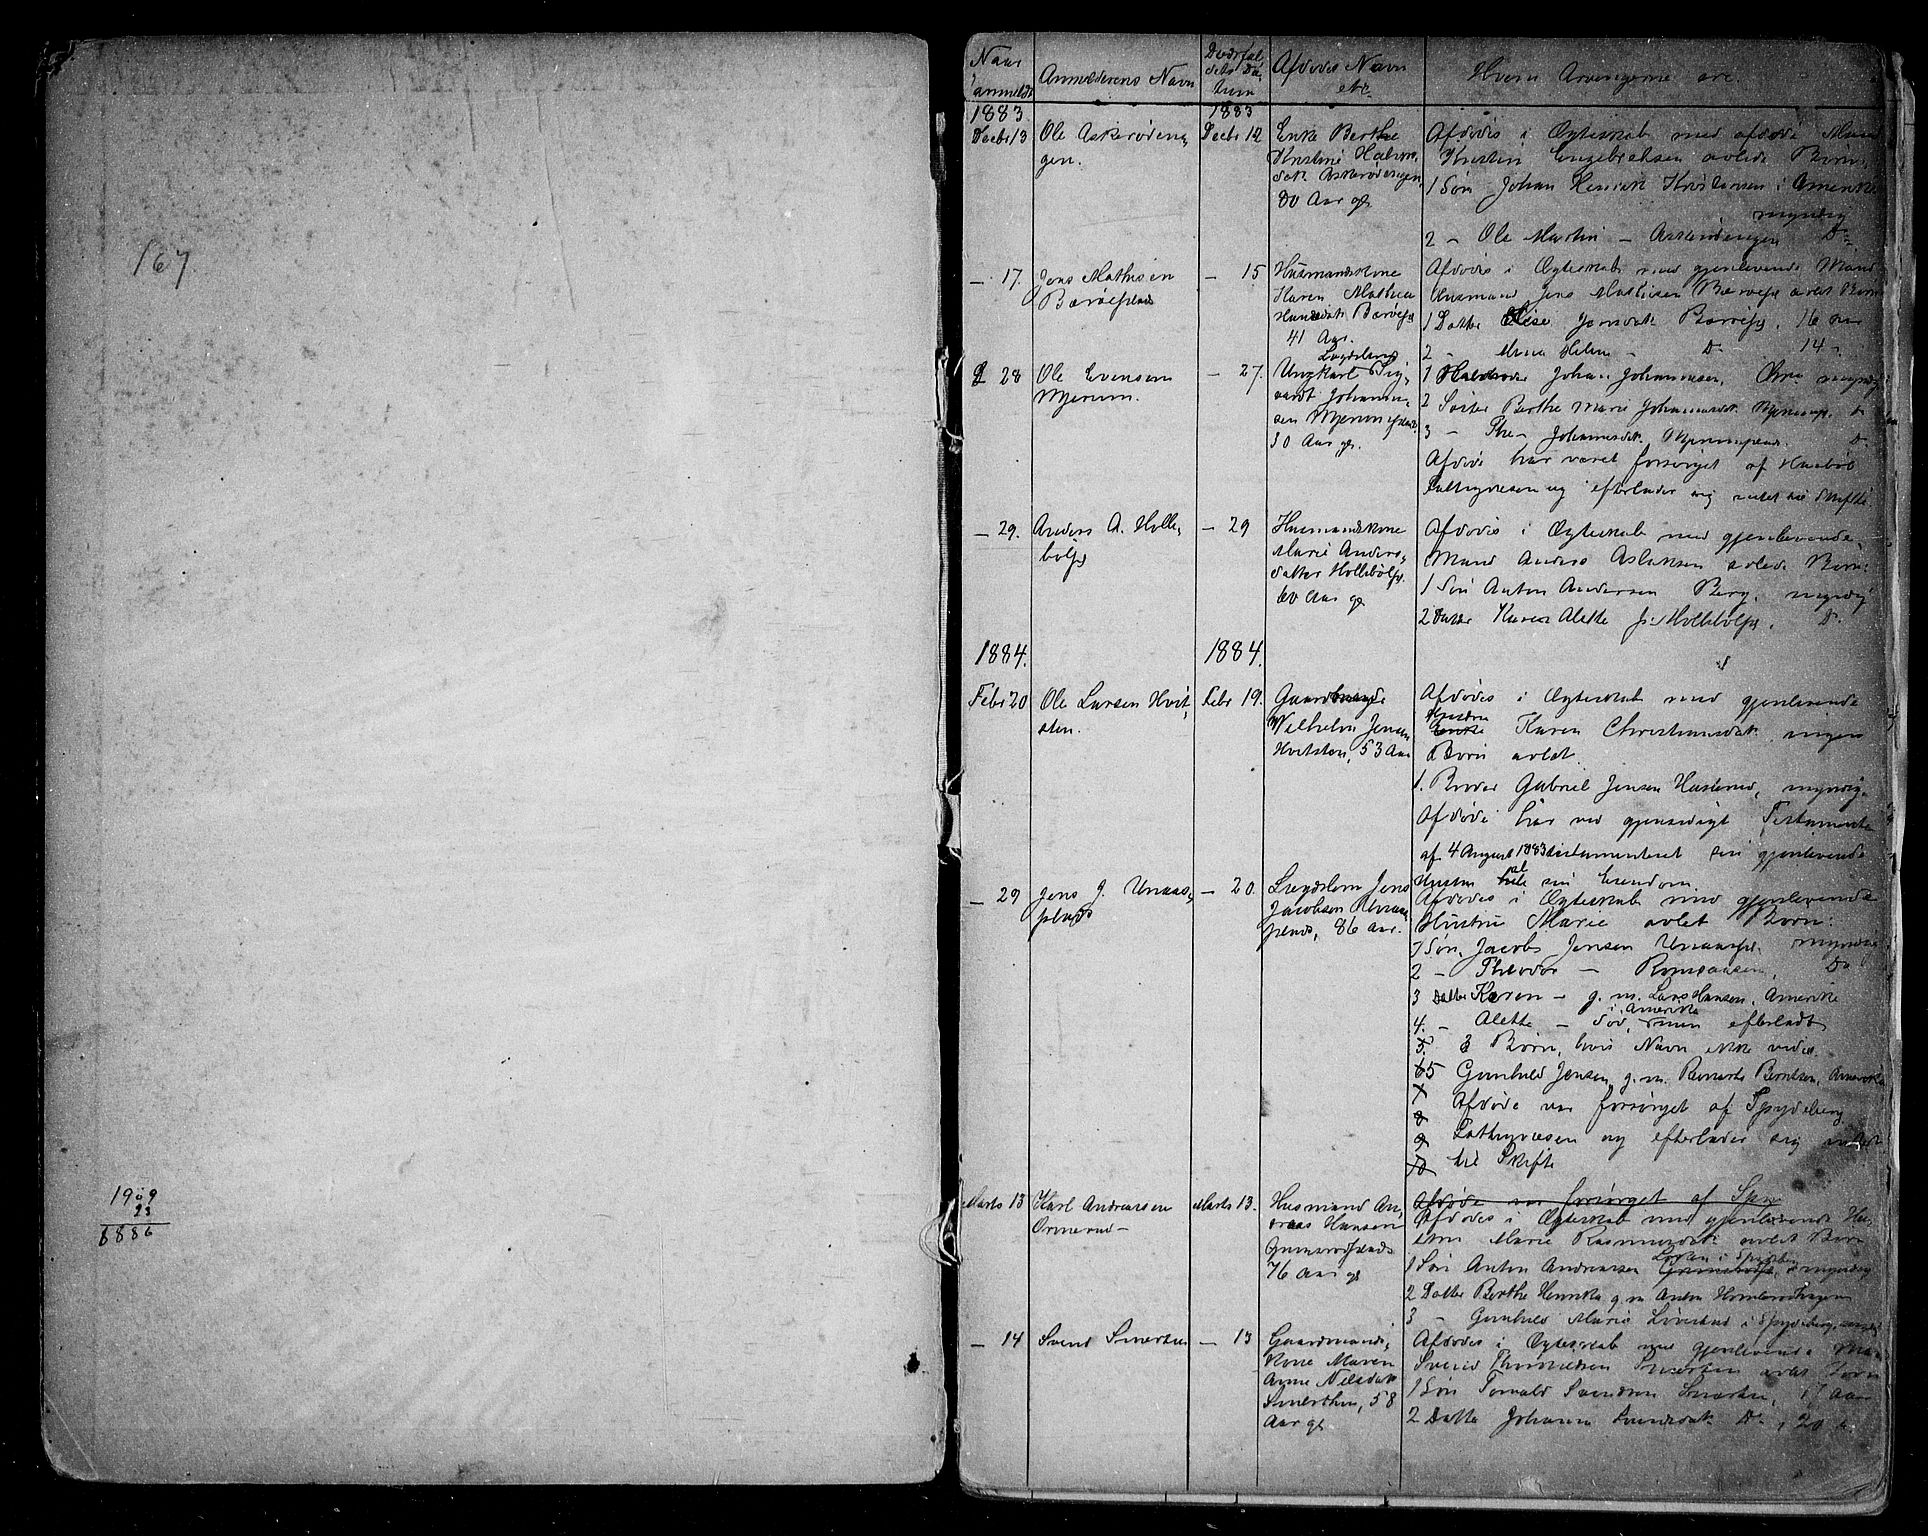 167
1909
23
1886
Naar anmeldt
Anmelderens Navn
Dødsfaldets Datum
Afdødes Navn etc
Hvem Arvingerne ere
1883
1883
Decbr 13
Ole Askerøden,
gen.
Decbr 12
Enke Berthe
Kristine Halvors
datt Askerødengen,
80 Aar gl.
Afdødes i Ægteskab med afdøde Mand
Kristen Engebretsen avlede Børn:
1 Søn Johan Henrik Kristensen i Amerika
myndig
2 — Ole Martin — Askerødengen Do
— 17.
Jens Mathisen
Bærøeplads
— 15
Husmandskone
Karen Mathea
Hansdatt Bærøepl
41 Aar.
Afdødes i Ægteskab med gjenlevende Mand
Husmand Jens Mathisen Bærøepl avlet Børn
1 Datter Elise Jensdatt Bærøepl. 16 aar
2 — Anna Helene — Do 14 —
28
Ole Evensen
Mjerum.
— 27.
Lægdslem
Ungkarl Sig,
vardt Johannes,
sen Mjerumeplads
30 Aar gl.
1 Johan Johannesen, myndig
2 Søster Berthe Marie Johannesdatt Mjerumepl. Do
3 — Johannesdatt. Mjerumsplads. Do
Afdøde har været forsørget af Haabøl
Fattigvæsen og efterlader sig intet til Skifte
— 29.
Anders A. Holle,
bølpl
— 29
Husmandskone
Marie Anders,
datter Hollebølpl.
60 Aar gl
Afdødes i Ægteskab med gjenlevende
Mand Anders Aslaksen avlede Børn:
1 Søn Anton Andersen Berg, myndig
2 Datter Karen Alette Hollebølpl. Do
1884.
1884.
Febr 20
Ole Larsen Hvit,
sten.
Febr 19.
Wilhelm Jensen
Hvitsten, 53 Aar
Afdødes i Ægteskab med gjenlevende
Hustru Karen Christiansdatt ingen
Børn avlet.
1. Broder Gabriel Jensen Haslerud, myndig.
Afdøde har ved gjensidigt Testamente
af 4 August 1883 testamenteret sin gjenlevende
Hustru al sin Eiendom.
— 29
Jens J. Unaas,
plads
— 20.
Lægdslem Jens
Jacobsen Unaas
plads, 86 Aar.
Afdødes i Ægteskab med gjenlevende
Hustru Marie avlet Børn:
1 Søn, Jacob Jensen Unaaspl. myndig
2 — Theodor — Romsaasen, Do
3 Datter Karen — g. m. Lars Hansen, Amerika
i Amerika
4. — Alette — død, men efterladt
5. 3 Børn, hvis Navn ikke vides.
6 5 Gunhild Jensen, g. m. Berntsen, Amerika
7
8 Afdøde var forsørget af Spydeberg
9 Fattigvæsen og efterlader sig intet
10 til Skifte
Marts 13
Karl Andreassen
Ormerud —
Marts 13.
Husmand An,
dreas Hansen
Grinsrødplads
76 Aar gl
Afdøde var forsørget af Spy
Afdødes i Ægteskab med gjenlevende Hu
stru Marie Rasmusdatt avlet Børn
1 Søn Anton Andreassen i Spydeberg, myndig
2 Datter Berthe Henrikke g m Anton
3 — Gunhild Marie Løvestad i Spydeberg,
— 14
Svend Smerten
— 13
Gaardmands,
kone Maren
Anne Nilsdatt
Smerthen, 58
Aar gl
Afdødes i Ægteskab med gjenlevende Mand
Svend Thorvaldsen Smerten avlet Børn
1 Søn Torvald Svendsen Smerten, 17 aar
2 Datter Johanna Svendsdatt Do, 20 "